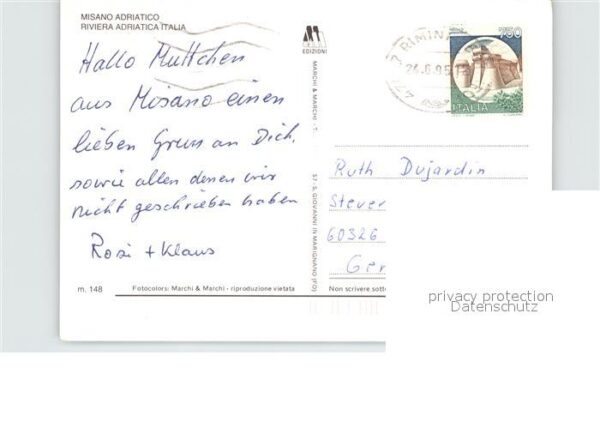 MISANO ADRIATICO
RIVIERA ADRIATICA ITALIA
Hallo Muttchen
aus Misano einen
lieben Gruss an Dich,
sowie allen denen wir
nicht geschrieben haben
Rosi + Klaus
m. 148
Fotocolors: Marchi & Marchi - riproduzione vietata
EDIZIONI
MARCHI & MARCHI -
S. GIOVANNI IN MARIGNANO (FO)
RIMINI
24.6.95
750
ITALIA
Ruth Dujardin
Stever
60326
Ger
Non scrivere sotto
privacy protection
Datenschutz